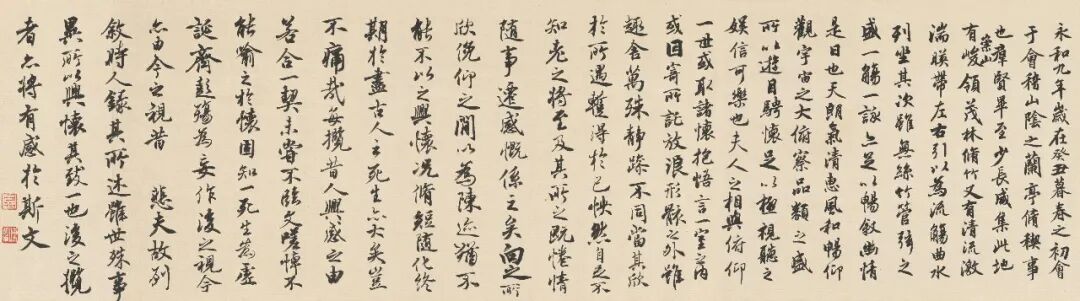 永和九年歲在癸丑暮春之初會
于會稽山陰之蘭亭脩禊事
也羣賢畢至少長咸集此地
有崇山峻領茂林脩竹又有清流激
湍暎帶左右引以為流觴曲水
列坐其次雖無絲竹管弦之
盛一觴一詠亦足以暢敘幽情
是日也天朗氣清惠風和暢仰
觀宇宙之大俯察品類之盛
所以遊目騁懷足以極視聽之
娛信可樂也夫人之相與俯仰
一世或取諸懷抱悟言一室之內
或因寄所託放浪形骸之外雖
趣舍萬殊靜躁不同當其欣
於所遇蹔得於己怏然自足不
知老之將至及其所之既惓情
隨事遷感慨係之矣向之所
欣俛仰之閒以為陳迹猶不
能不以之興懷況脩短隨化終
期於盡古人云死生亦大矣豈
不痛哉每攬昔人興感之由
若合一契未嘗不臨文嗟悼不
能喻之於懷固知一死生為虛
誕齊彭殤為妄作後之視今
亦由今之視昔 悲夫故列
敘時人錄其所述雖世殊事
異所以興懷其致一也後之攬
者亦將有感於斯文